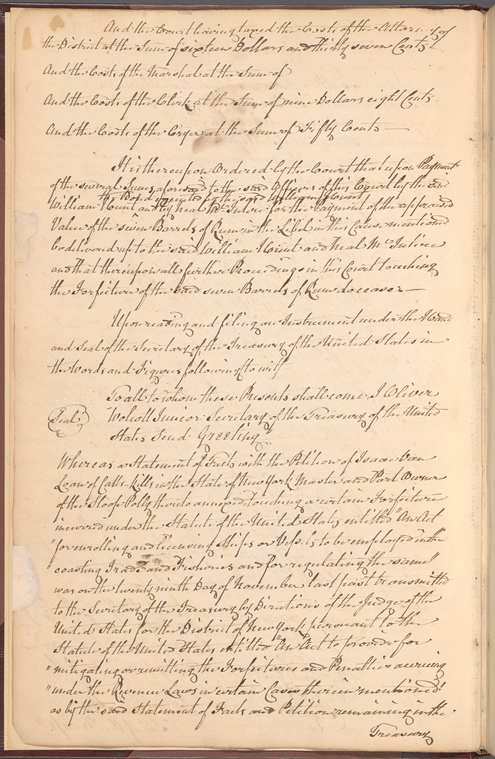 And the Court having taxed the Costs of the Attorney of
the District at the Sum of sixteen Dollars and thirty seven Cents
And the Costs of the Marshal at the Sum of
And the Costs of the Clerk at the Sum of nine Dollars eight Cents
And the Costs of the Cryer at the Sum of Fifty Cents
It is thereupon Ordered by the Court that upon Payment
of the several Sums aforesaid to the said Officers of this Court by the said
William
Value of the seven Barrels of Rum in the Libel in this Cause mentioned
be delivered up to the said William and Neal McIntire
and that thereupon all further Proceedings in this Court touching
the Forfeiture of the said seven Barrels of Rum do cease
Upon reading and filing an Instrument under the Hand
and Seal of the Secretary of the Treasury of the United States in
the Words and Figures following to wit
To all to whom these Presents shall come I Oliver
Seal
Wolcott Junior Secretary of the Treasury of the United
States Send Greeting
Whereas a Statement of Facts with the Petition of Isaac Van
Loan of Catts Kills in the State of New York Master and Part Owner
of the Sloop Polly thereto annexed touching a certain Forfeiture
incurred under the Statute of the United States entitled "An Act
"for enrolling and licensing Ships or Vessels to be employed in the
"coasting Trade and Fisheries and for regulating the same"
was on the twenty ninth Day of November last past transmitted
to the Secretary of the Treasury by Directions of the Judge of the
United States for the District of New York pursuant to the
Statute of the United States entitled An Act to provide for
"mitigating or remitting the Forfeitures and Penalties accruing
"under the Revenue Laws in certain Cases therein mentioned"
as by the said Statement of Facts and Petition remaining in the
Treasury